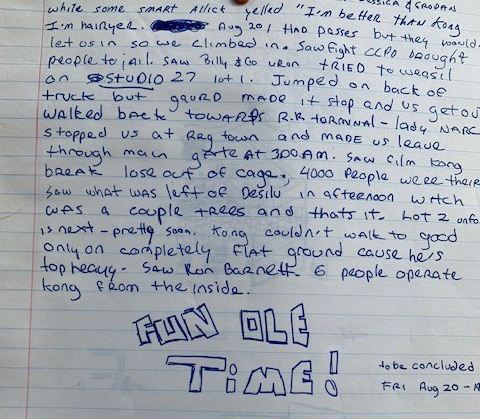 JESSICA & GRODAN
while some smart Allick yelled "I'm better than Kong
I'm hairyer. Aug 20, I HAD Passes but they would
let us in so we climbed in. Saw fight CCPD brought
people to jail. Saw Billy & Co upon TRIED to weasil
on STUDIO 27 lot 1. Jumped on back of
truck but gaurd made it stop and us get ou
walked back towards R.R. terminal - lady NARC
stopped us at Rag town and made us leave
through main gate at 3:00 A.M. saw film Kong
break lose out of cage, 4000 people were their
saw what was left of Desilu in afternoon witch
was a couple trees and thats it. Lot 2 unfo
is next - pretty soon. Kong couldn't walk to good
only on completely flat ground cause he's
top heavy. Saw Ron Barnett 6 people operate
kong from the inside.
FUN OLE
TIME!
to be concluded
FRI Aug 20 -